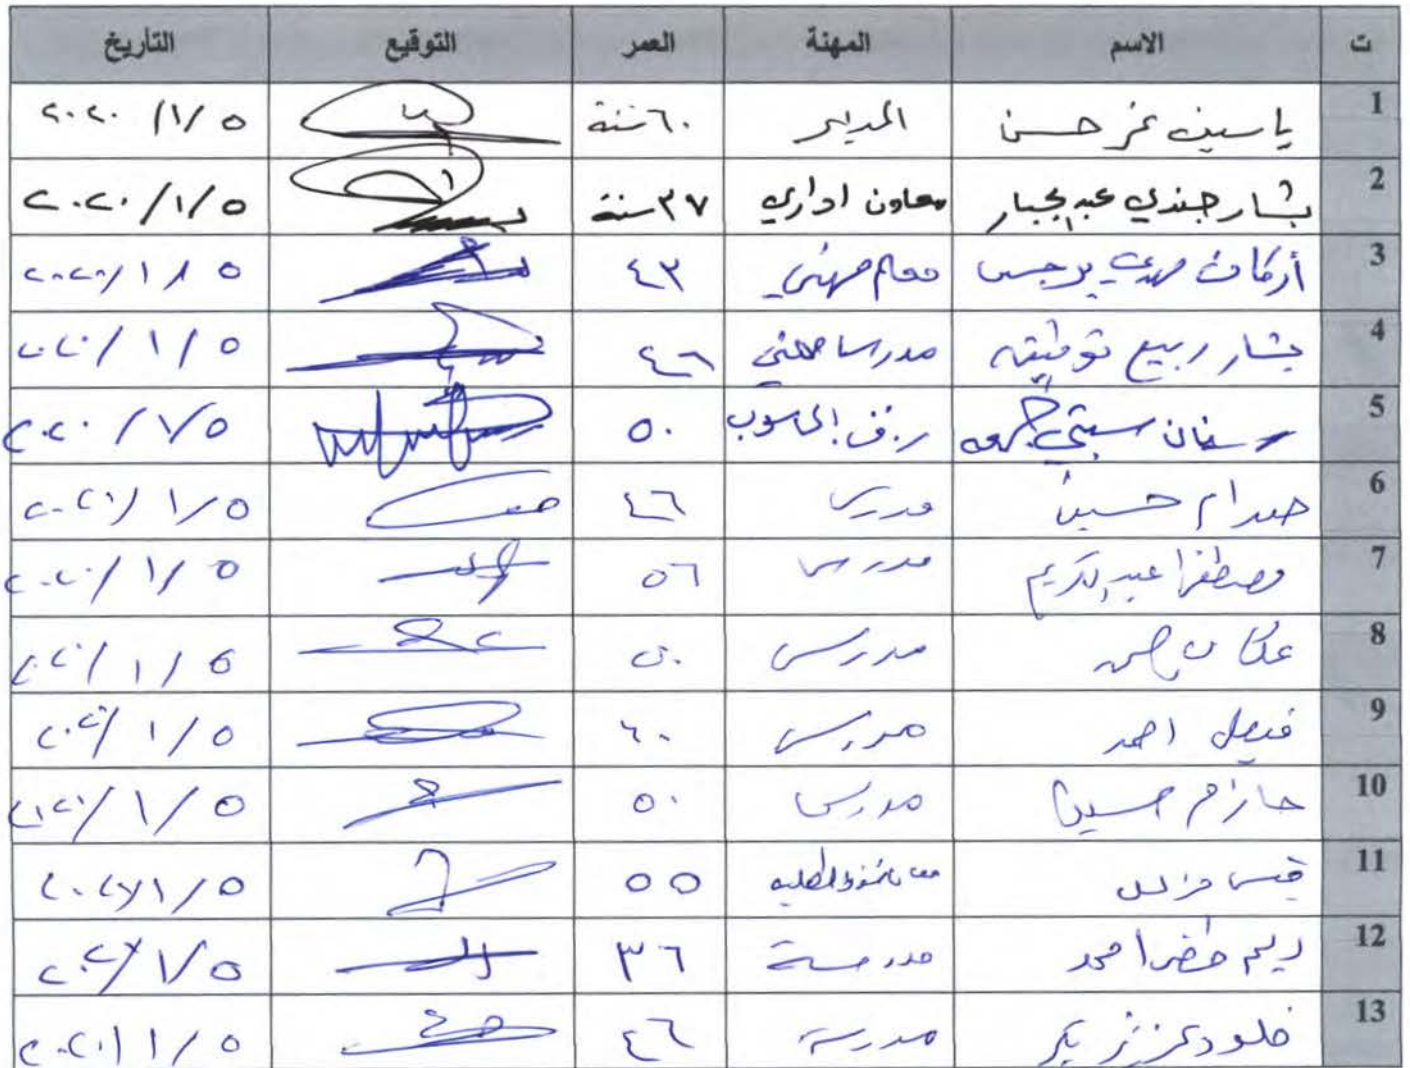 ت الاسم المهنة العمر التوقيع التأريخ
1 ياسين حسن المدير ٦٠ سنة ٢٠٢٠/١/٥
2 بشار جندي عبد الجبار معاون اداري ٣٧ سنة ٢٠٢٠/١/٥
3 أركان مهدي معلم مهني ٤٣ ٢٠٢٠/١/٥
4 بشار ربيع توفيق مدرس مهني ٤٦ ٢٠٢٠/١/٥
5 سبتي الحاسوب ٥٠ ٢٠٢٠/١/٥
6 صدام حسين مدرس ٤٦ ٢٠٢٠/١/٥
7 مصطفى عبد الكريم مدرس ٥٦ ٢٠٢٠/١/٥
8 مدرس ٥٠ ٢٠٢٠/١/٥
9 فيصل احمد مدرس ٦٠ ٢٠٢٠/١/٥
10 حازم حسين مدرس ٥٠ ٢٠٢٠/١/٥
11 قيس ٥٥ ٢٠٢٠/١/٥
12 ريم خضر احمد مدرسة ٣٦ ٢٠٢٠/١/٥
13 خلود عزيز مدرسة ٤٦ ٢٠٢٠/١/٥